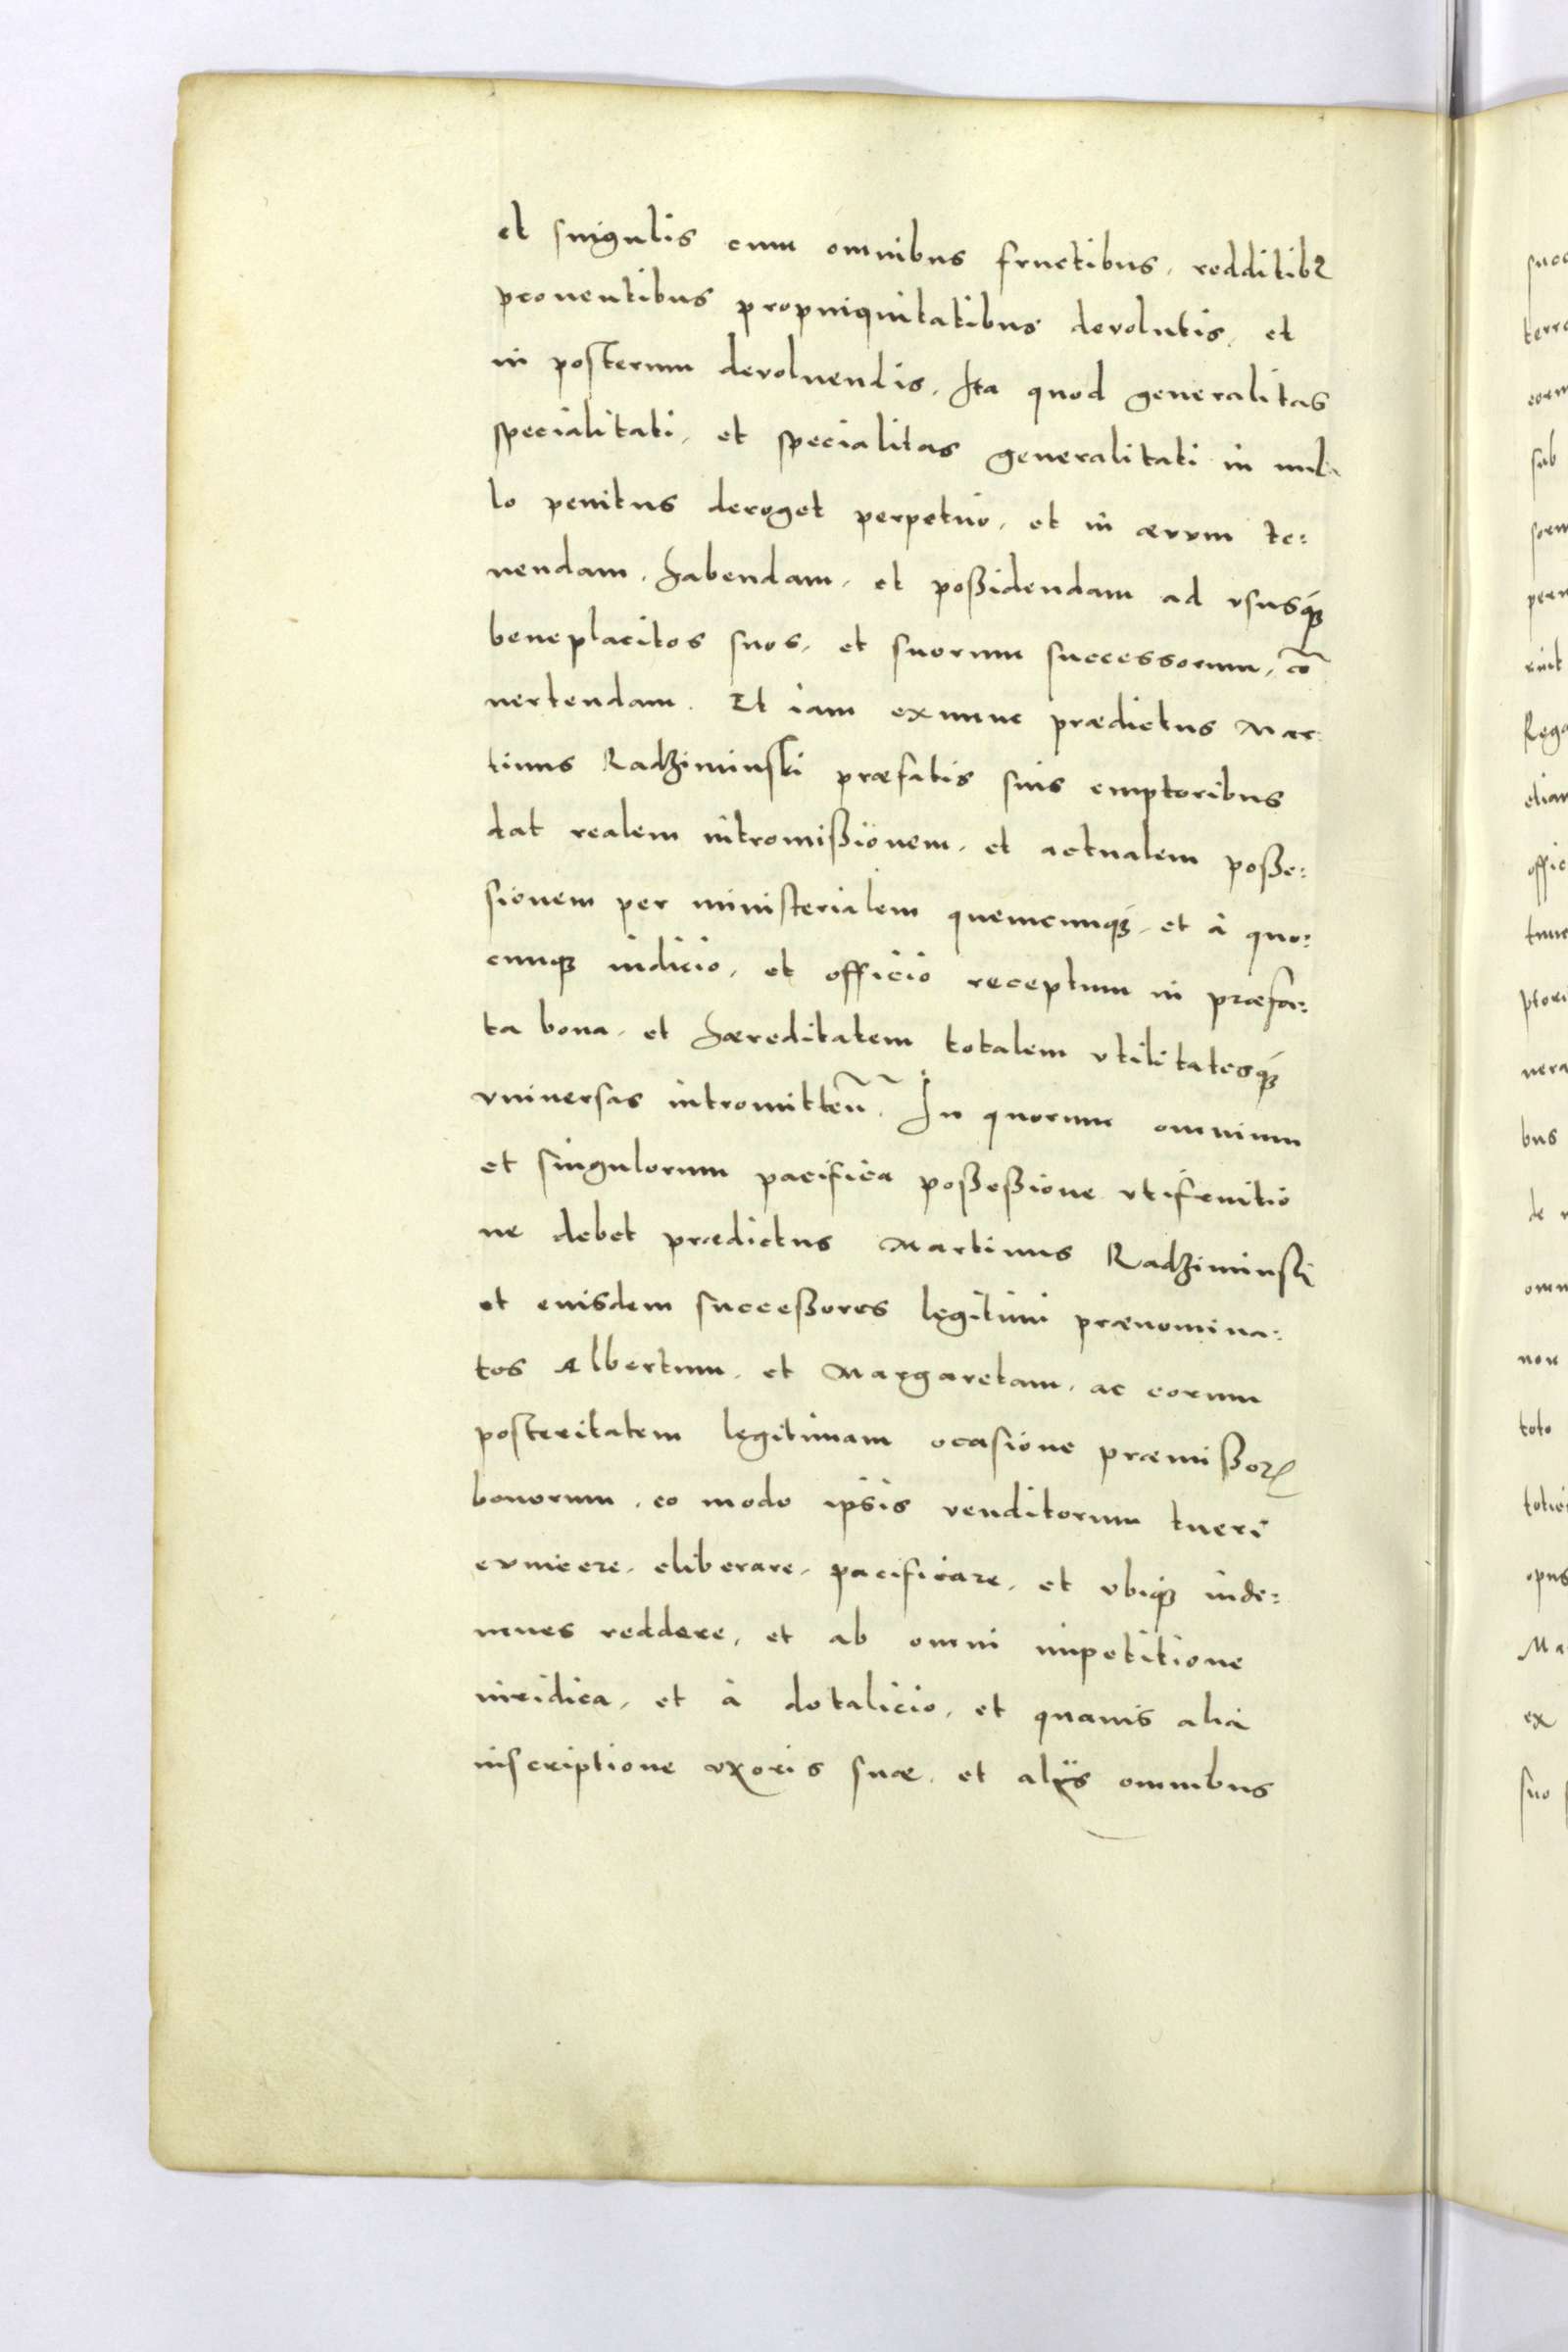 et singulis cum omnibus fructibus, redditibꝰ
prouentibus propinquitatibus devolutis, et
in posterum devoluendis, Ita quod generalitas
specialitati, et specialitas generalitati in nul
lo penitus deroget perpetuo, et in ævvm te:
nendam, habendam, et poßidendam ad vsusq́ꝫ
beneplacitos suos, et suorum successorum, cō
uertendam. Et iam exnunc prædictus Mar
tinus Radziminski præfatis suis emptoribus
dat realem intromißionem, et actualem poße:
sionem per ministerialem quemcunqꝫ, et à quo:
cunqꝫ iudicio, et officio receptum in præfa:
ta bona, et hæreditatem totalem vtilitatesq́ꝫ
vniversas intromitteñ. In quorum omnium
et singulorum pacifica poßeßione vtifruitio
ne debet prædictus Martinus Radziminski
et eiusdem succeßores legitimi prænomina:
tos Albertum, et Margaretam, ac eorum
posteritatem legitimam ocasione præmißoꝝ
bonorum, eo modo ipsis venditorum tueri
evincere, eliberare, pacificare, et vbiqꝫ inde:
mnes reddere, et ab omni impetitione
iuridica, et à dotalicio, et quauis alia
inscriptione vxoris suæ, et alijs omnibus
suos
sub
ruit
bus
de
non
toto
opus
Ma
ex
suo